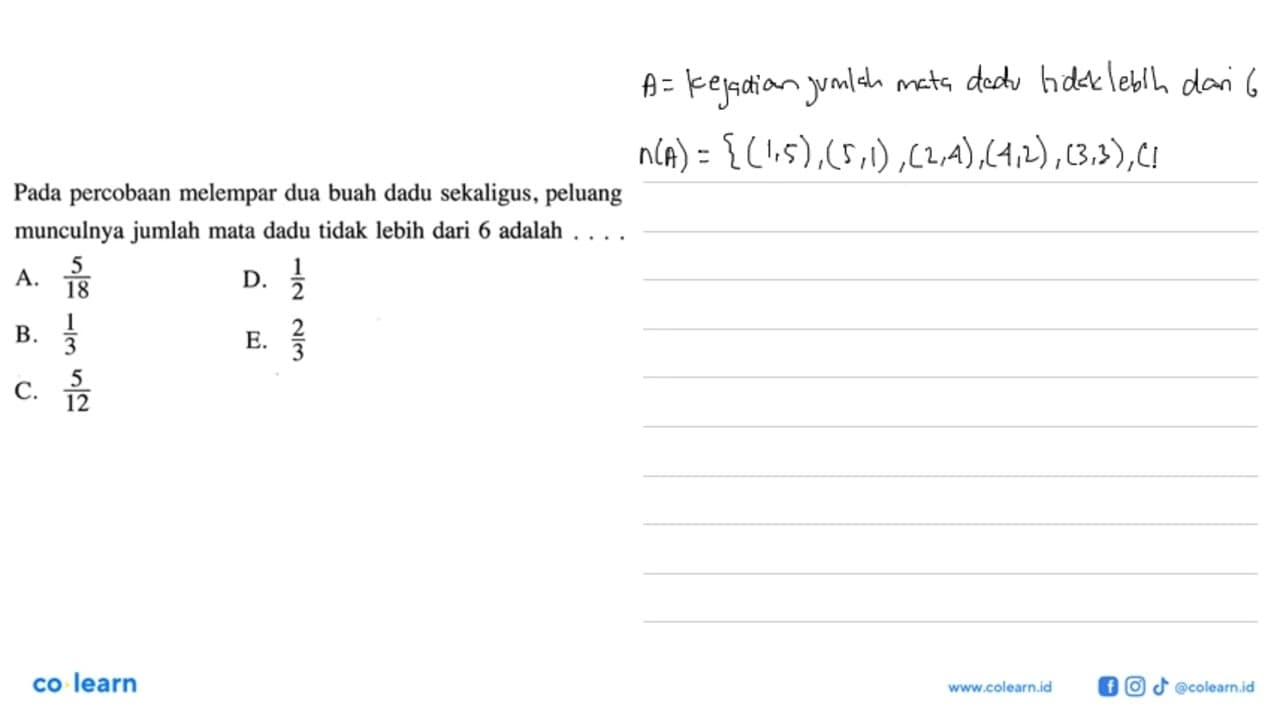 A = kejadian jumlah mata dadu tidak lebih dari 6
n(A) = {(1,5),(5,1),(2,4),(4,2),(3,3),(1
Pada percobaan melempar dua buah dadu sekaligus, peluang
munculnya jumlah mata dadu tidak lebih dari 6 adalah . . . .
A. 5/18 D. 1/2
B. 1/3 E. 2/3
C. 5/12
co learn
www.colearn.id @colearn.id